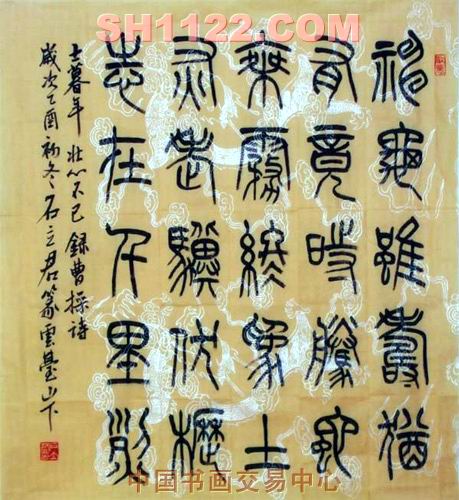 SH1122.COM
神龜雖壽猶
有竟時騰蛇
乘霧終為土
灰老驥伏櫪
志在千里烈
士暮年壯心不已錄曹操詩
歲次乙酉初冬石立君篆雲臺山下
中国书画交易中心